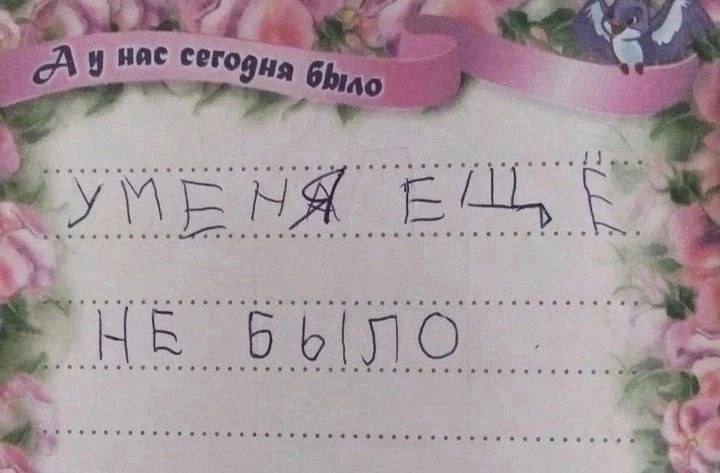 А у нас сегодня было
УМЕНЯ ЕЩЁ
НЕ БЫЛО